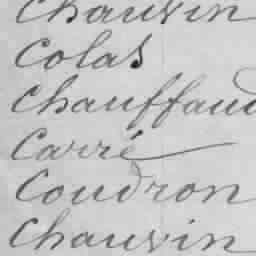 Chauvin
Colas
Chauffau
Carré
Coudron
Chauvin